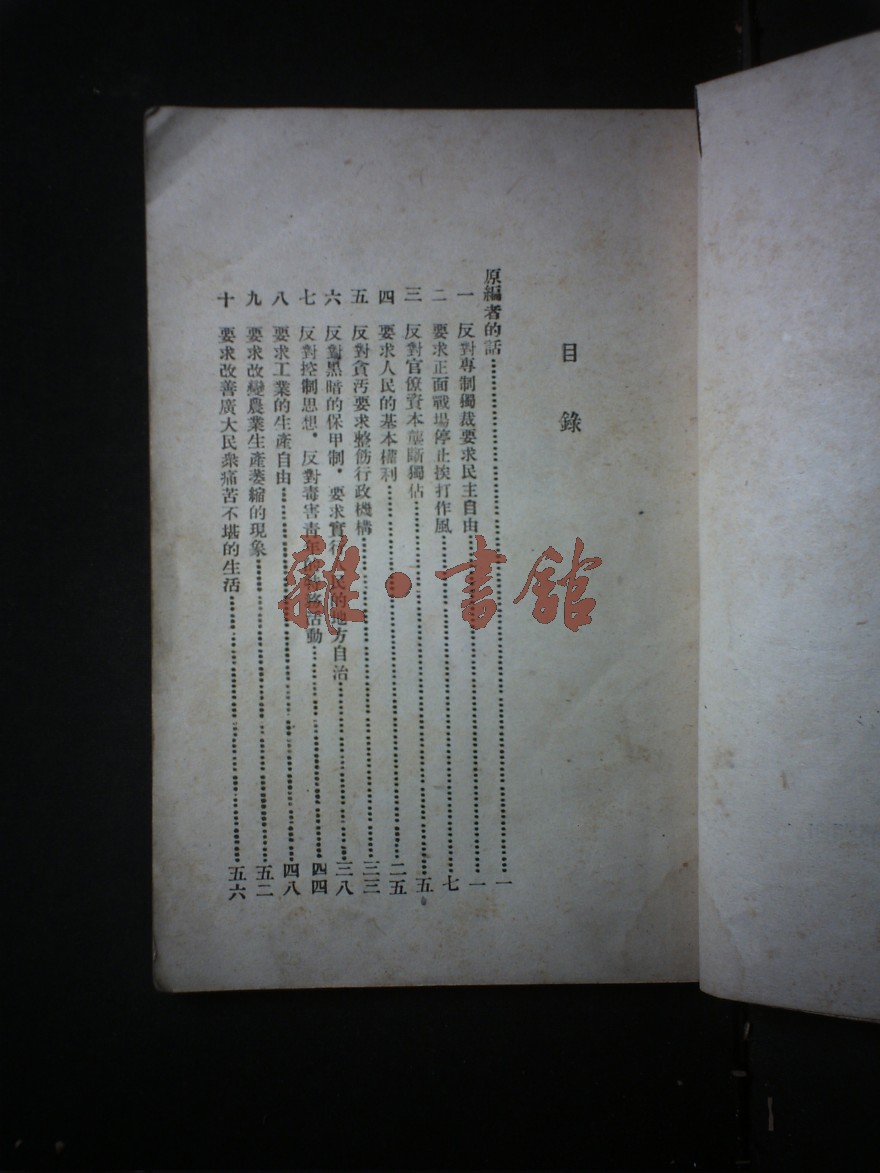 目錄
原編者的話……一
一 反對專制獨裁要求民主自由……一
二 要求正面戰場停止挨打作風……七
三 反對官僚資本壟斷獨佔……五
四 要求人民的基本權利……二五
五 反對貪汚要求整飭行政機構……三三
六 反對黑暗的保甲制．要求實行人民的地方自治……三八
七 反對控制思想．反對毒害靑年的特務活動……四四
八 要求工業的生產自由……四八
九 要求改變農業生產萎縮的現象……五二
十 要求改善廣大民衆痛苦不堪的生活……五六
雜·書館